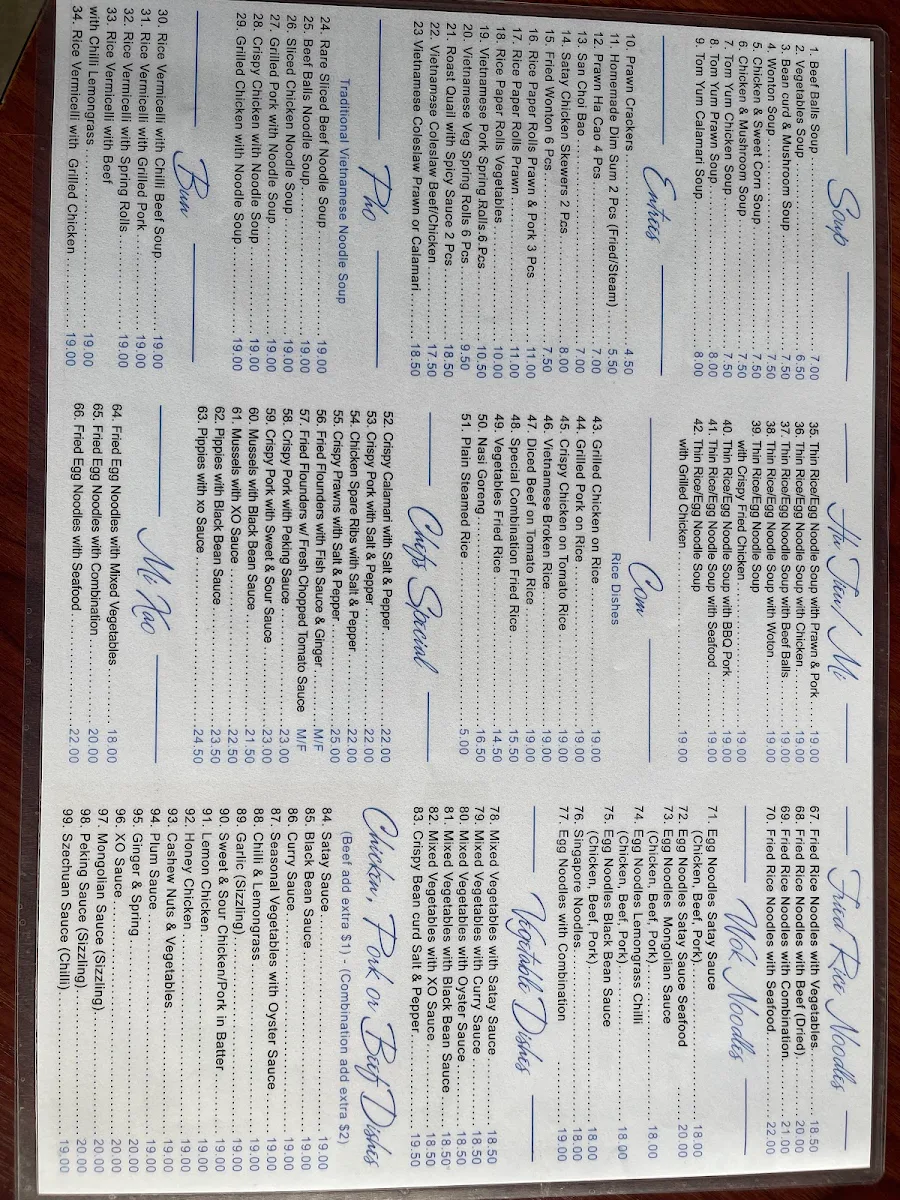 Soup
1. Beef Balls Soup ..... 7.00
2. Vegetables Soup ..... 6.50
3. Bean curd & Mushroom Soup ..... 7.50
4. Wonton Soup ..... 7.50
5. Chicken & Sweet Corn Soup ..... 7.50
6. Chicken & Mushroom Soup ..... 7.50
7. Tom Yum Chicken Soup ..... 7.50
8. Tom Yum Prawn Soup ..... 8.00
9. Tom Yum Calamari Soup ..... 8.00
Entries
10. Prawn Crackers ..... 4.50
11. Homemade Dim Sum 2 Pcs (Fried/Steam) ..... 5.50
12. Prawn Ha Cao 4 Pcs ..... 7.00
13. San Choi Bao ..... 7.00
14. Satay Chicken Skewers 2 Pcs ..... 8.00
15. Fried Wonton 6 Pcs ..... 7.50
16. Rice Paper Rolls Prawn & Pork 3 Pcs ..... 11.00
17. Rice Paper Rolls Prawn ..... 11.00
18. Rice Paper Rolls Vegetables ..... 10.00
19. Vietnamese Pork Spring Rolls 6 Pcs ..... 10.50
20. Vietnamese Veg Spring Rolls 6 Pcs ..... 9.50
21. Roast Quail with Spicy Sauce 2 Pcs ..... 18.50
22. Vietnamese Coleslaw Beef/Chicken ..... 17.50
23 Vietnamese Coleslaw Prawn or Calamari ..... 18.50
Pho
Traditional Vietnamese Noodle Soup
24. Rare Sliced Beef Noodle Soup ..... 19.00
25. Beef Balls Noodle Soup ..... 19.00
26. Sliced Chicken Noodle Soup ..... 19.00
27. Grilled Pork with Noodle Soup ..... 19.00
28. Crispy Chicken with Noodle Soup ..... 19.00
29. Grilled Chicken with Noodle Soup ..... 19.00
Bun
30. Rice Vermicelli with Chilli Beef Soup ..... 19.00
31. Rice Vermicelli with Grilled Pork ..... 19.00
32. Rice Vermicelli with Spring Rolls ..... 19.00
33. Rice Vermicelli with Beef
with Chilli Lemongrass ..... 19.00
34. Rice Vermicelli with Grilled Chicken ..... 19.00
Hu Tieu/ Mi
35. Thin Rice/Egg Noodle Soup with Prawn & Pork ..... 19.00
36. Thin Rice/Egg Noodle Soup with Chicken ..... 19.00
37. Thin Rice/Egg Noodle Soup with Beef Balls ..... 19.00
38. Thin Rice/Egg Noodle Soup with Woton ..... 19.00
39. Thin Rice/Egg Noodle Soup
with Crispy Fried Chicken ..... 19.00
40. Thin Rice/Egg Noodle Soup with BBQ Pork ..... 19.00
41. Thin Rice/Egg Noodle Soup with Seafood ..... 19.00
42. Thin Rice/Egg Noodle Soup
with Grilled Chicken ..... 19.00
Com
Rice Dishes
43. Grilled Chicken on Rice ..... 19.00
44. Grilled Pork on Rice ..... 19.00
45. Crispy Chicken on Tomato Rice ..... 19.00
46. Vietnamese Broken Rice ..... 19.00
47. Diced Beef on Tomato Rice ..... 19.00
48. Special Combination Fried Rice ..... 15.50
49. Vegetables Fried Rice ..... 14.50
50. Nasi Goreng ..... 16.50
51. Plain Steamed Rice ..... 5.00
Chefs Special
52. Crispy Calamari with Salt & Pepper ..... 22.00
53. Crispy Pork with Salt & Pepper ..... 22.00
54. Chicken Spare Ribs with Salt & Pepper ..... 22.00
55. Crispy Prawns with Salt & Pepper ..... 25.00
56. Fried Flounders with Fish Sauce & Ginger ..... M/F
57. Fried Flounders w/ Fresh Chopped Tomato Sauce M/F
58. Crispy Pork with Peking Sauce ..... 23.00
59. Crispy Pork with Sweet & Sour Sauce ..... 23.00
60. Mussels with Black Bean Sauce ..... 21.50
61. Mussels with XO Sauce ..... 22.50
62. Pippies with Black Bean Sauce ..... 23.50
63. Pippies with xo Sauce ..... 24.50
Mi Xao
64. Fried Egg Noodles with Mixed Vegetables ..... 18.00
65. Fried Egg Noodles with Combination ..... 20.00
66. Fried Egg Noodles with Seafood ..... 22.00
Fried Rice Noodles
67. Fried Rice Noodles with Vegetables ..... 18.50
68. Fried Rice Noodles with Beef (Dried) ..... 20.00
69. Fried Rice Noodles with Combination ..... 21.00
70. Fried Rice Noodles with Seafood ..... 22.00
Wok Noodles
71. Egg Noodles Satay Sauce
(Chicken, Beef, Pork) ..... 18.00
72. Egg Noodles Satay Sauce Seafood ..... 20.00
73. Egg Noodles Mongolian Sauce
(Chicken, Beef, Pork) ..... 18.00
74. Egg Noodles Lemongrass Chilli
(Chicken, Beef, Pork) ..... 18.00
75. Egg Noodles Black Bean Sauce
(Chicken, Beef, Pork) ..... 18.00
76. Singapore Noodles ..... 18.00
77. Egg Noodles with Combination ..... 19.00
Vegetable Dishes
78. Mixed Vegetables with Satay Sauce ..... 18.50
79. Mixed Vegetables with Curry Sauce ..... 18.50
80. Mixed Vegetables with Oyster Sauce ..... 18.50
81. Mixed Vegetables with Black Bean Sauce ..... 18.50
82. Mixed Vegetables with XO Sauce ..... 18.50
83. Crispy Bean curd Salt & Pepper ..... 19.50
Chicken, Pork or Beef Dishes
(Beef add extra $1) - (Combination add extra $2)
84. Satay Sauce ..... 19.00
85. Black Bean Sauce ..... 19.00
86. Curry Sauce ..... 19.00
87. Seasonal Vegetables with Oyster Sauce ..... 19.00
88. Chilli & Lemongrass ..... 19.00
89. Garlic (Sizzling) ..... 19.00
90. Sweet & Sour Chicken/Pork in Batter ..... 19.00
91. Lemon Chicken ..... 19.00
92. Honey Chicken ..... 19.00
93. Cashew Nuts & Vegetables ..... 19.00
94. Plum Sauce ..... 19.00
95. Ginger & Spring ..... 20.00
96. XO Sauce ..... 20.00
97. Mongolian Sauce (Sizzling) ..... 20.00
98. Peking Sauce (Sizzling) ..... 20.00
99. Szechuan Sauce (Chilli) ..... 19.00